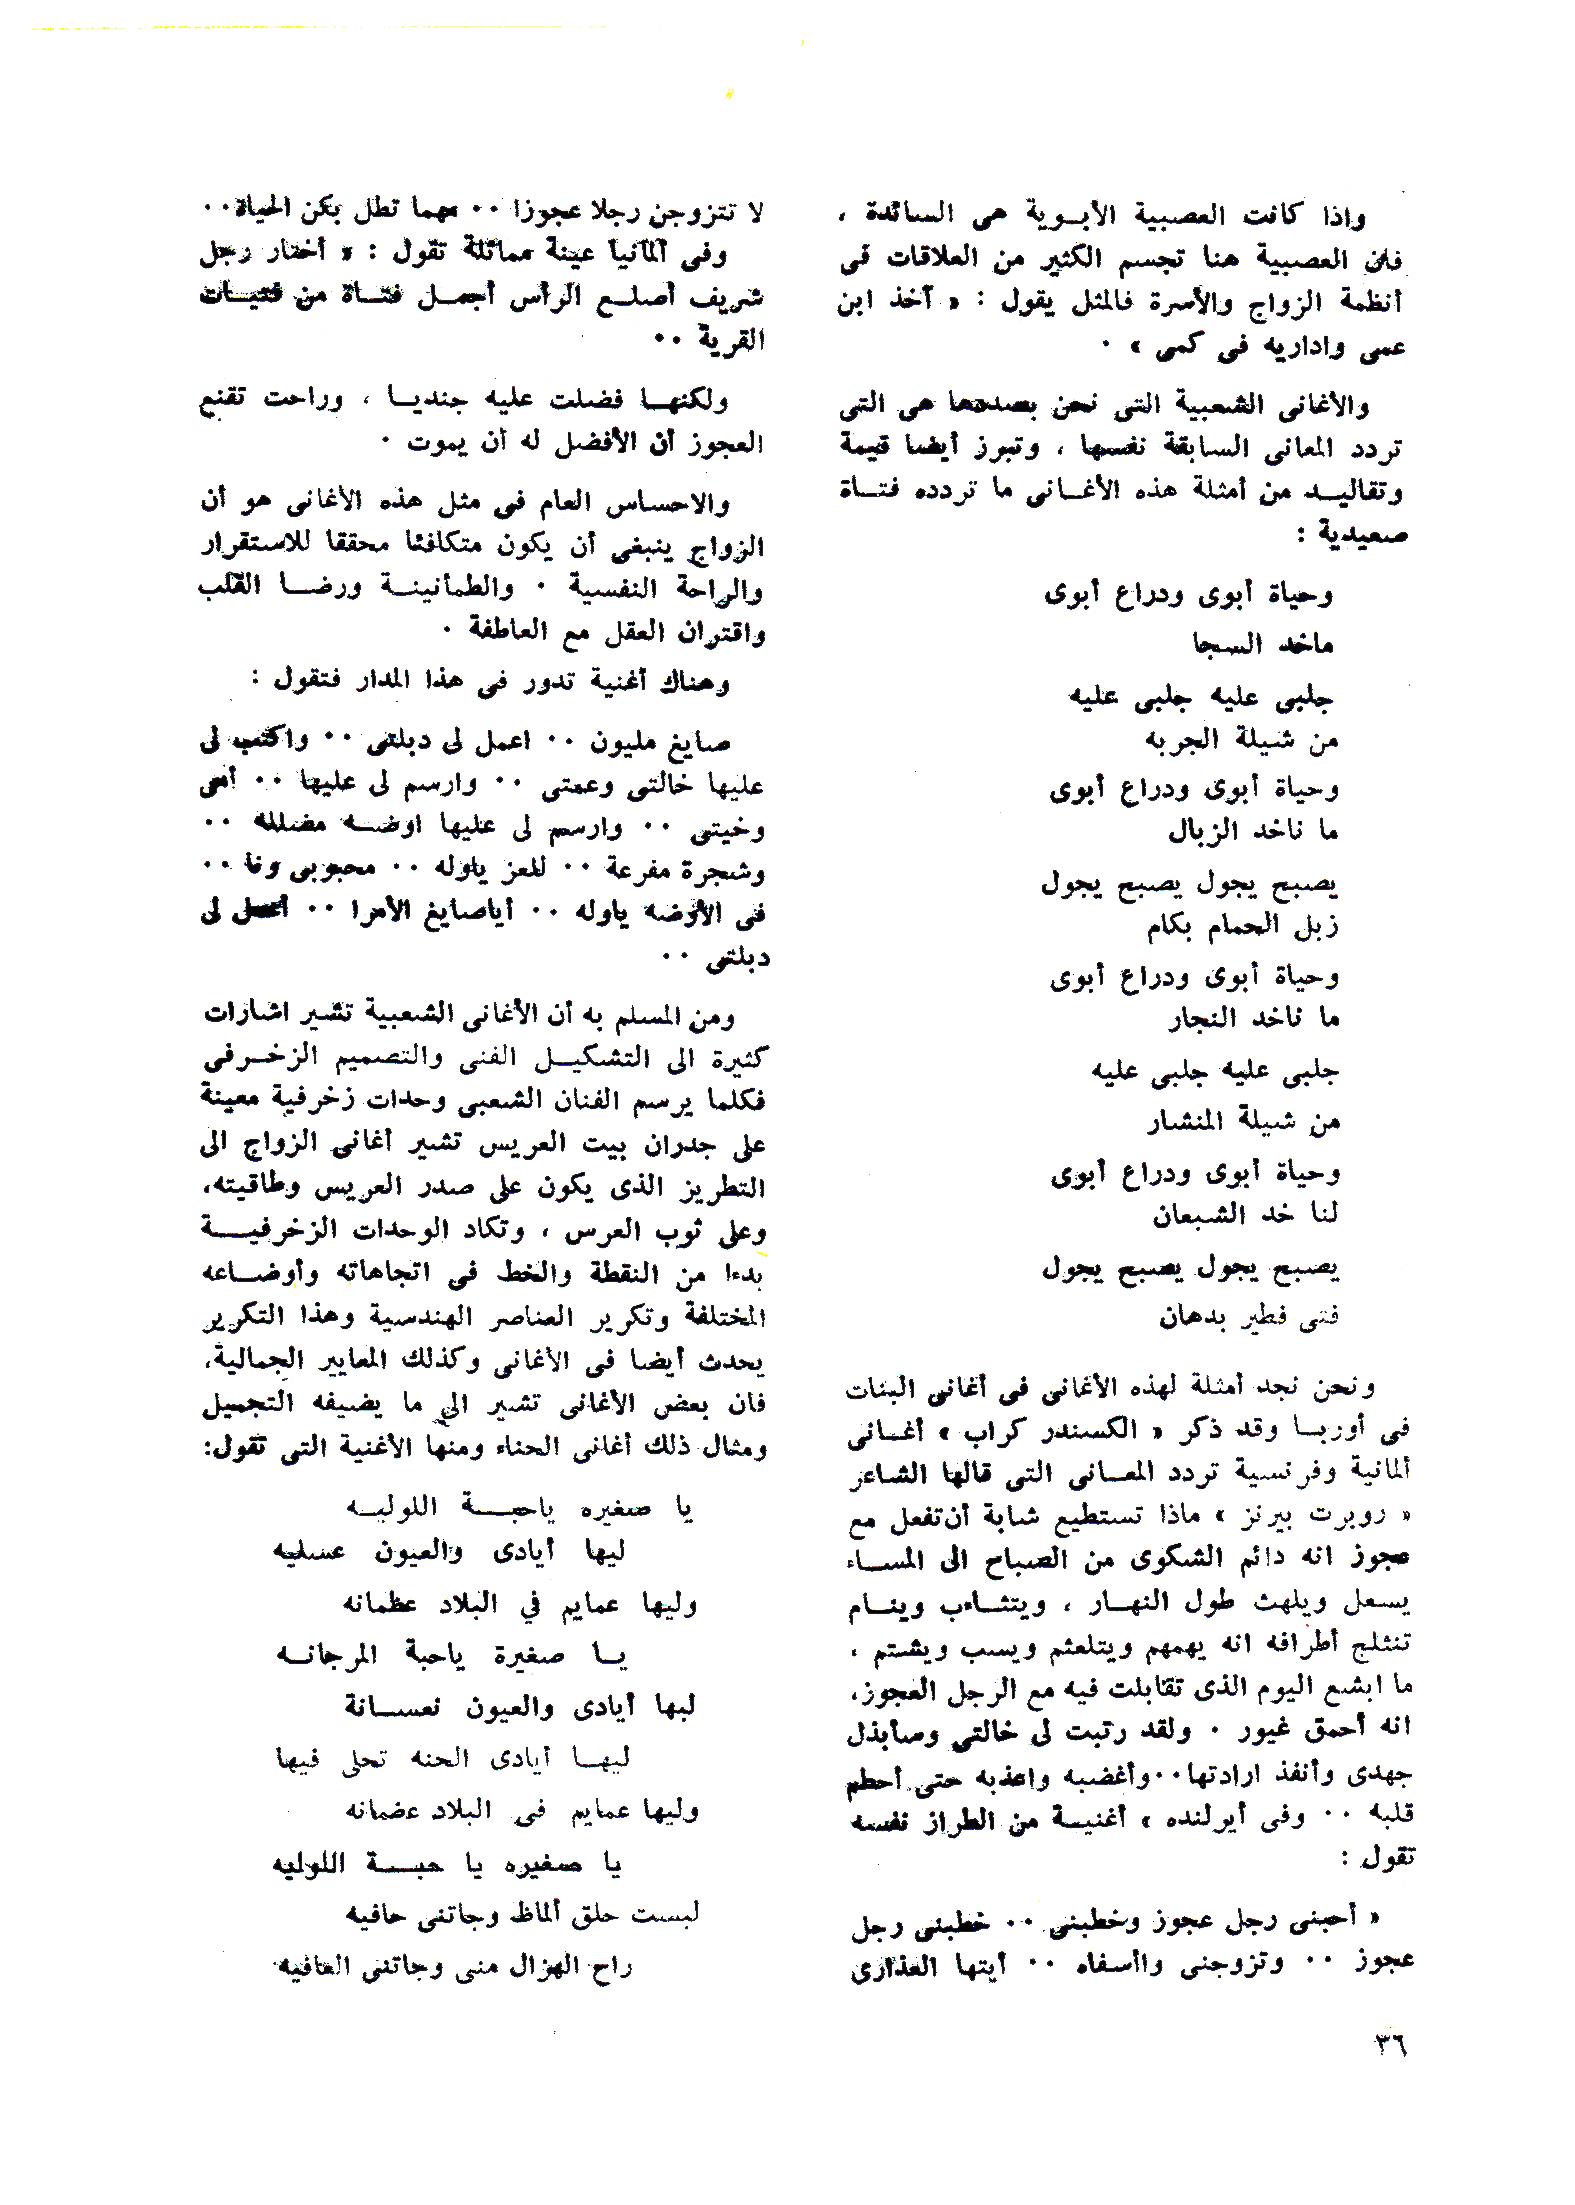 واذا كانت العصبية الأبوية هى السائدة ،
فان العصبية هنا تجسم الكثير من العلاقات فى
أنظمة الزواج والأسرة فالمثل يقول : « آخذ ابن
عمى واداريه فى كمى » ٠
والأغانى الشعبية التى نحن بصددها هى التى
تردد المعانى السابقة نفسها ، وتبرز أيضا قيمة
وتقاليد من أمثلة هذه الأغانى ما تردده فتاة
صعيدية :
وحياة أبوى ودراع أبوى
ماخد السجا
جلبى عليه جلبى عليه
من شيلة الجربه
وحياة أبوى ودراع أبوى
ما ناخد الزبال
يصبح يجول يصبح يجول
زبل الحمام بكام
وحياة أبوى ودراع أبوى
ما ناخد النجار
جلبى عليه جلبى عليه
من شيلة المنشار
وحياة أبوى ودراع أبوى
لنا خد الشبعان
يصبح يجول يصبح يجول
فتى فطير بدهان
ونحن نجد أمثلة لهذه الأغانى فى أغانى البنات
فى أوربا وقد ذكر « الكسندر كراب » أغانى
ألمانية وفرنسية تردد المعانى التى قالها الشاعر
« روبرت بيرنز » ماذا تستطيع شابة أن تفعل مع
عجوز انه دائم الشكوى من الصباح الى المساء
يسعل ويلهث طول النهار ، ويتثاءب وينام
تنثلج أطرافه انه يهمهم ويتلعثم ويسب ويشتم ،
ما ابشع اليوم الذى تقابلت فيه مع الرجل العجوز،
انه أحمق غيور ٠ ولقد رتبت لى خالتى وسأبذل
جهدى وأنفذ ارادتها٠٠وأغضبه واعذبه حتى أحطم
قلبه ٠٠ وفى أيرلنده » أغنية من الطراز نفسه
تقول :
« أحبنى رجل عجوز وخطبنى ٠٠ خطبنى رجل
عجوز ٠٠ وتزوجنى وأسفاه ٠٠ أيتها العذارى
لا تتزوجن رجلا عجوزا ٠٠ مهما تطل بكن الحياة٠٠
وفى ألمانيا عينة مماثلة تقول : « أختار رجل
شريف أصلع الرأس أجمل فتاة من فتيات
القرية ٠٠
ولكنها فضلت عليه جنديا ، وراحت تقنع
العجوز أن الأفضل له أن يموت ٠
والاحساس العام فى مثل هذه الأغانى هو أن
الزواج ينبغى أن يكون متكافئا محققا للاستقرار
والراحة النفسية ٠ والطمأنينة ورضا القلب
واقتران العقل مع العاطفة ٠
وهناك أغنية تدور فى هذا المدار فتقول :
صايغ مليون ٠٠ اعمل لى دبلتى ٠٠ واكتب لى
عليها خالتى وعمتى ٠٠ وارسم لى عليها ٠٠ أمى
وخيتى ٠٠ وارسم لى عليها اوضه مضلله ٠٠
وشجرة مفرعة ٠٠ للعز ياوله ٠٠ محبوبى ونا ٠٠
فى الأوضه ياوله ٠٠ أياصايغ الأمرا ٠٠ أعمل لى
دبلتى ٠٠
ومن المسلم به أن الأغانى الشعبية تشير اشارات
كثيرة الى التشكيل الفنى والتصميم الزخرفى
فكلما يرسم الفنان الشعبى وحدات زخرفية معينة
على جدران بيت العريس تشير أغانى الزواج الى
التطريز الذى يكون على صدر العريس وطاقيته،
وعلى ثوب العرس ، وتكاد الوحدات الزخرفية
بدءا من النقطة والخط فى اتجاهاته وأوضاعه
المختلفة وتكرير العناصر الهندسية وهذا التكرير
يحدث أيضا فى الأغانى وكذلك المعايير الجمالية،
فان بعض الأغانى تشير الى ما يضيفه التجميل
ومثال ذلك أغانى الحناء ومنها الأغنية التى تقول:
يا صغيره ياحبة اللوليه
ليها أيادى والعيون عسليه
وليها عمايم في البلاد عظمانه
يا صغيرة ياحبة المرجانه
لبها أيادى والعيون نعسانة
ليها أيادى الحنه تحلى فيها
وليها عمايم فى البلاد عضمانه
يا صغيره يا حبة اللوليه
لبست حلق ألماظ وجاتنى حافيه
راح الهزال منى وجاتنى العافيه
٣٦